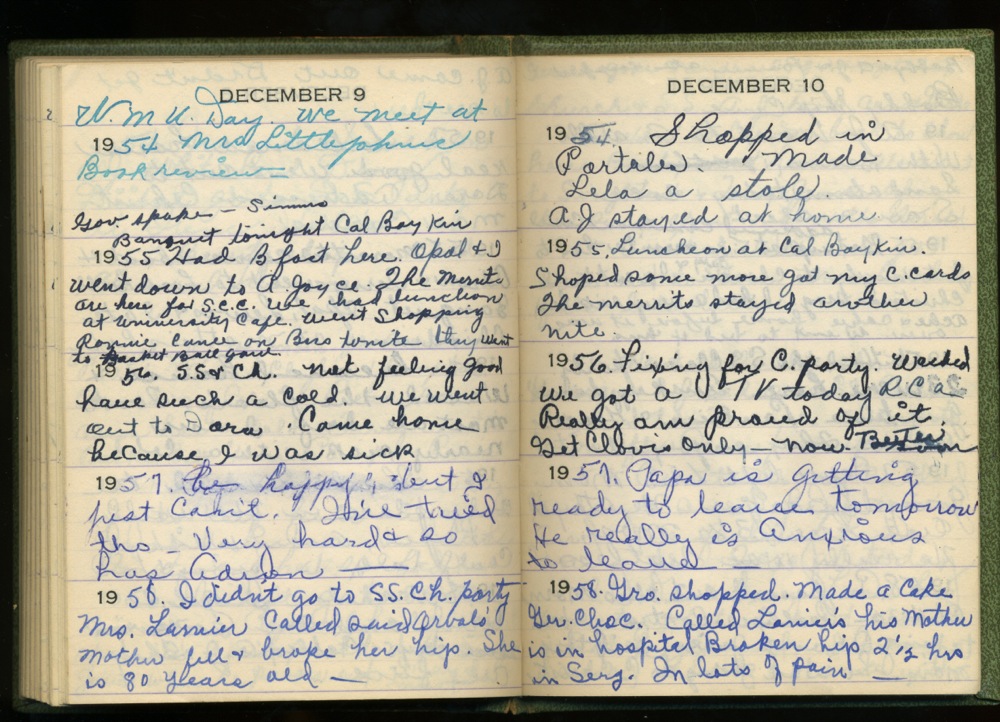 DECEMBER 9
W. M. U. Day. We meet at
1954 Mrs Littlephine
Book review —
Gov. spoke — Simms
Banquet tonight Cal Boykin
1955 Had Bfast here. Opal & I
went down to A Joyce. The Merrits
are here for S.C.C. We had lunchon
at University Cafe. Went Shopping
Ronnie came on Bus tonite they went
to Basket Ball game.
1956. S.S & Ch. not feeling good
have such a cold. We went
out to Dora. Come home
because I was sick
1957. be happy; but I
just can't. I've tried
tho — Very hard & so
has Adrian —
1958. I didn't go to SS. Ch. party
Mrs. Lanier called said Orbal's
Mother fell & broke her hip. She
is 80 years old —
DECEMBER 10
1954. Shopped in
Portales. Made
Lela a stole.
A J stayed at home
1955, Luncheon at Cal Boykin.
Shoped some more got my C. cards
The merrits stayed another
nite.
1956. Fixing for C. party. Washed
We got a TV today R.C.A.
Really am proud of it.
Get Clovis only — now.
1957. Papa is getting
ready to leave tomorrow
He really is Anxious
to leave —
1958. Gro. shopped. Made a Cake
Gr. Choc. Called Lanier's his Mother
is in hospital Broken hip 2½ hrs
in Serg. In lots of pain —